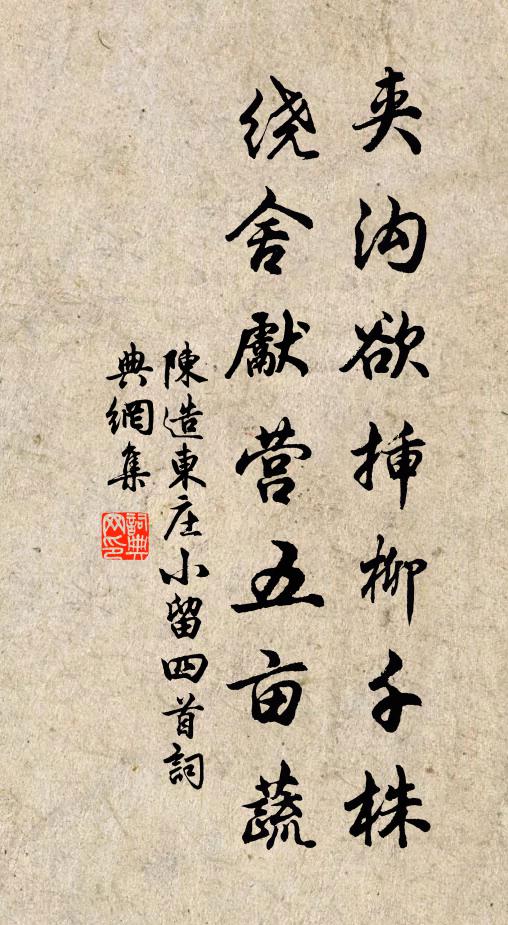 夹沟欲挿柳千株
绕舍獻营五亩蔬
陳造東庄小留四首詞
典網集
詞典网印